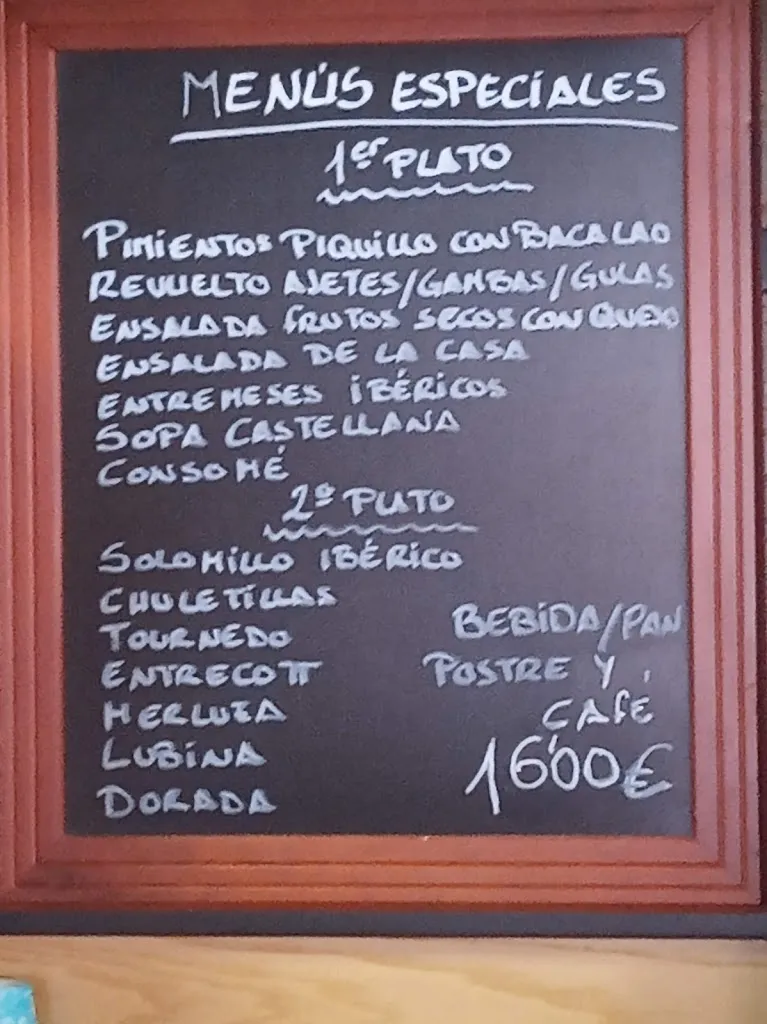 MENÚS ESPECIALES
1er PLATO
PIMIENTOS PIQUILLO CON BACALAO
REVUELTO AJETES/GAMBAS/GULAS
ENSALADA FRUTOS SECOS CON QUESO
ENSALADA DE LA CASA
ENTREMESES IBÉRICOS
SOPA CASTELLANA
CONSOMÉ
2º PLATO
SOLOMILLO IBÉRICO
CHULETILLAS
TOURNEDO
ENTRECOTT
MERLUZA
LUBINA
DORADA
BEBIDA/PAN
POSTRE Y
CAFÉ
16'00€